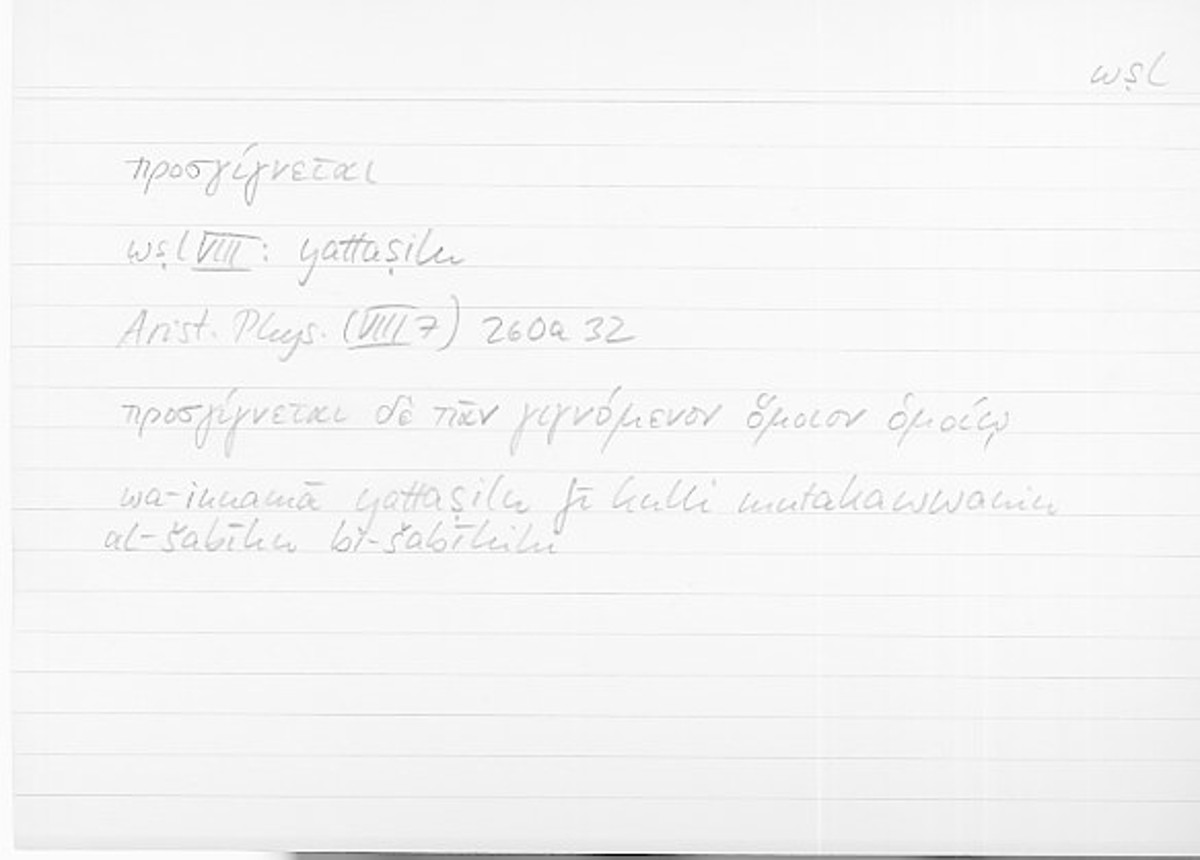 wṣl
προσγίγνεται
wṣl VIII: yattaṣilu
Arist. Phys. (VIII 7) 260a 32
προσγίγνεται δὲ πᾶν γιγνόμενον ὅμοιον ὁμοίῳ
wa-innamā yattaṣilu fī kulli mutakawwanin
al-šabīhu bi-šabīhihi